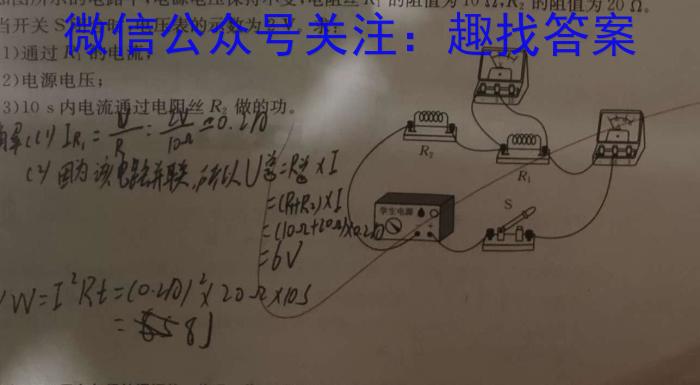 如图所示的电路中,电源电压保持不变,电阻丝R₁的阻值为10 Ω,R₂的阻值为20 Ω。
当开关S
微信公众号关注:趣找答案
(1)通过R₁的电流;
(2)电源电压;
(3)10 s内电流通过电阻丝R₂做的功。
解(1) I_R₁ = U/R = 2V/10Ω = 0.2A
(2) 因为该电路并联,所以U总=R总×I
=(R₁+R₂)×I
=(10Ω+20Ω)×0.2A
=6V
W=I²Rt=(0.2A)²×20Ω×10s
= 8J
R₂
R₁
S
学生电源